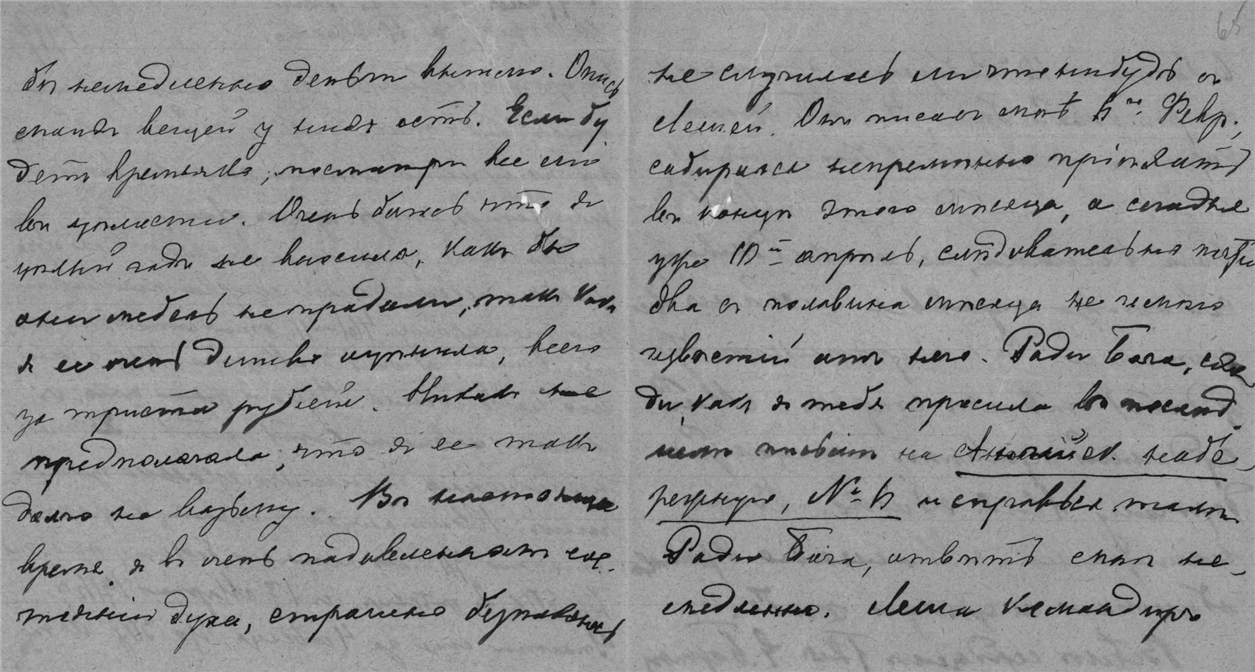 бы немедленно деньги выслала. Опись
моихъ вещей у тебя есть. Если бу
детъ время, посмотри все ли
въ цѣлости. Очень боюсь что я
цѣлый годъ не вносила, какъ бы
они мебель не продали, такъ какъ
я ее очень дешево купила, всего
за триста рублей. Никакъ не
предполагала, что я ее такъ
долго не возьму. Въ настоящее
время я въ очень подавленномъ сос-
тояніи духа, страшно безпокоюсь
65
не случилось ли что нибудь съ
Лешей. Онъ писалъ мнѣ Февр.,
собирался непремѣнно пріѣхать
въ концѣ этого мѣсяца, а сегодня
уже 10й апрѣль, слѣдовательно почти
два съ половина мѣсяца не имѣю
извѣстій отъ него. Ради Бога, схо
ди, какъ я тебя просила въ послѣд
немъ письмѣ на Англійск. набе-
режную, № и справься тамъ
Ради Бога, отвѣть мнѣ не-
медленно. Леша командиръ